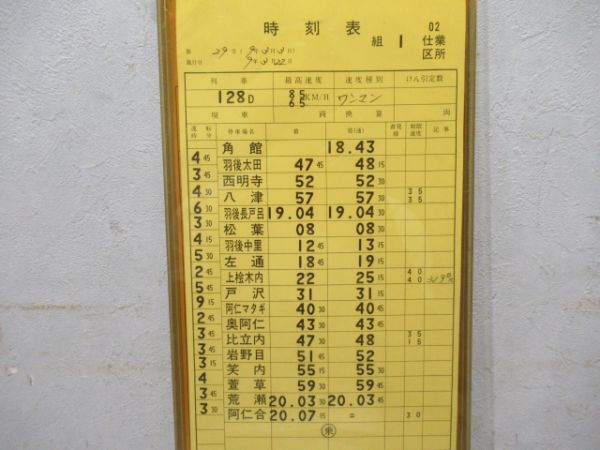 時刻表
組 1 02 仕業
区所
第 29号(9年3月3日)
施行日 9年3月22日
列車 最高速度 速度種別 けん引定数
128D 85 KM/H ワンマン
65
現車 両 換算 両
運転時分 停車場名 着 発(通) 着発線 制限速度 記事
角館 18.43
4 45
羽後太田 47 45 48 15
3 45
西明寺 52 52 30
4 30
八津 57 57 30 35 35
6 30
羽後長戸呂 19.04 19.04 30
3 30
松葉 08 08 30
4 15
羽後中里 12 45 13 15
5 30
左通 18 45 19 15
2 45
上桧木内 22 25 15 40 40
5 45
戸沢 31 31 15
9 15
阿仁マタギ 40 30 40 45
2 45
奥阿仁 43 30 43 45
3 45
比立内 47 30 48 35 15
3 45
岩野目 51 45 52
3 15
笑内 55 15 55 30
4
萱草 59 30 59 45
3 45
荒瀬 20.03 30 20.03 45
3 30
阿仁合 20.07 15 = 30
乗